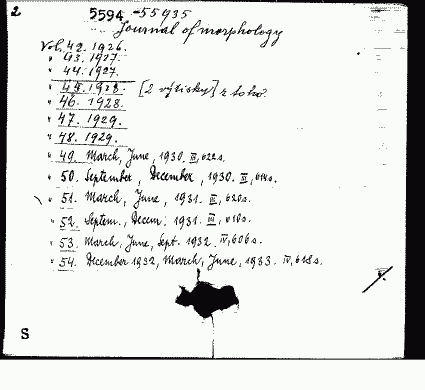 2
5594-55935
Journal of morphology
Vol. 42. 1926.
" 43. 1927.
" 44. 1927.
" 45. 1928. [2 výtisky] z toho
" 46. 1928.
" 47. 1929.
" 48. 1929.
" 49. March, June, 1930. III, 622 s.
" 50. September, December, 1930. III, 614 s.
" 51. March, June, 1931. III, 620 s.
" 52. Septem., Decem. 1931. III, s.
" 53. March, June, Sept. 1932. IV, 606 s.
" 54. December 1932, March, June, 1933. IV, 618 s.
S